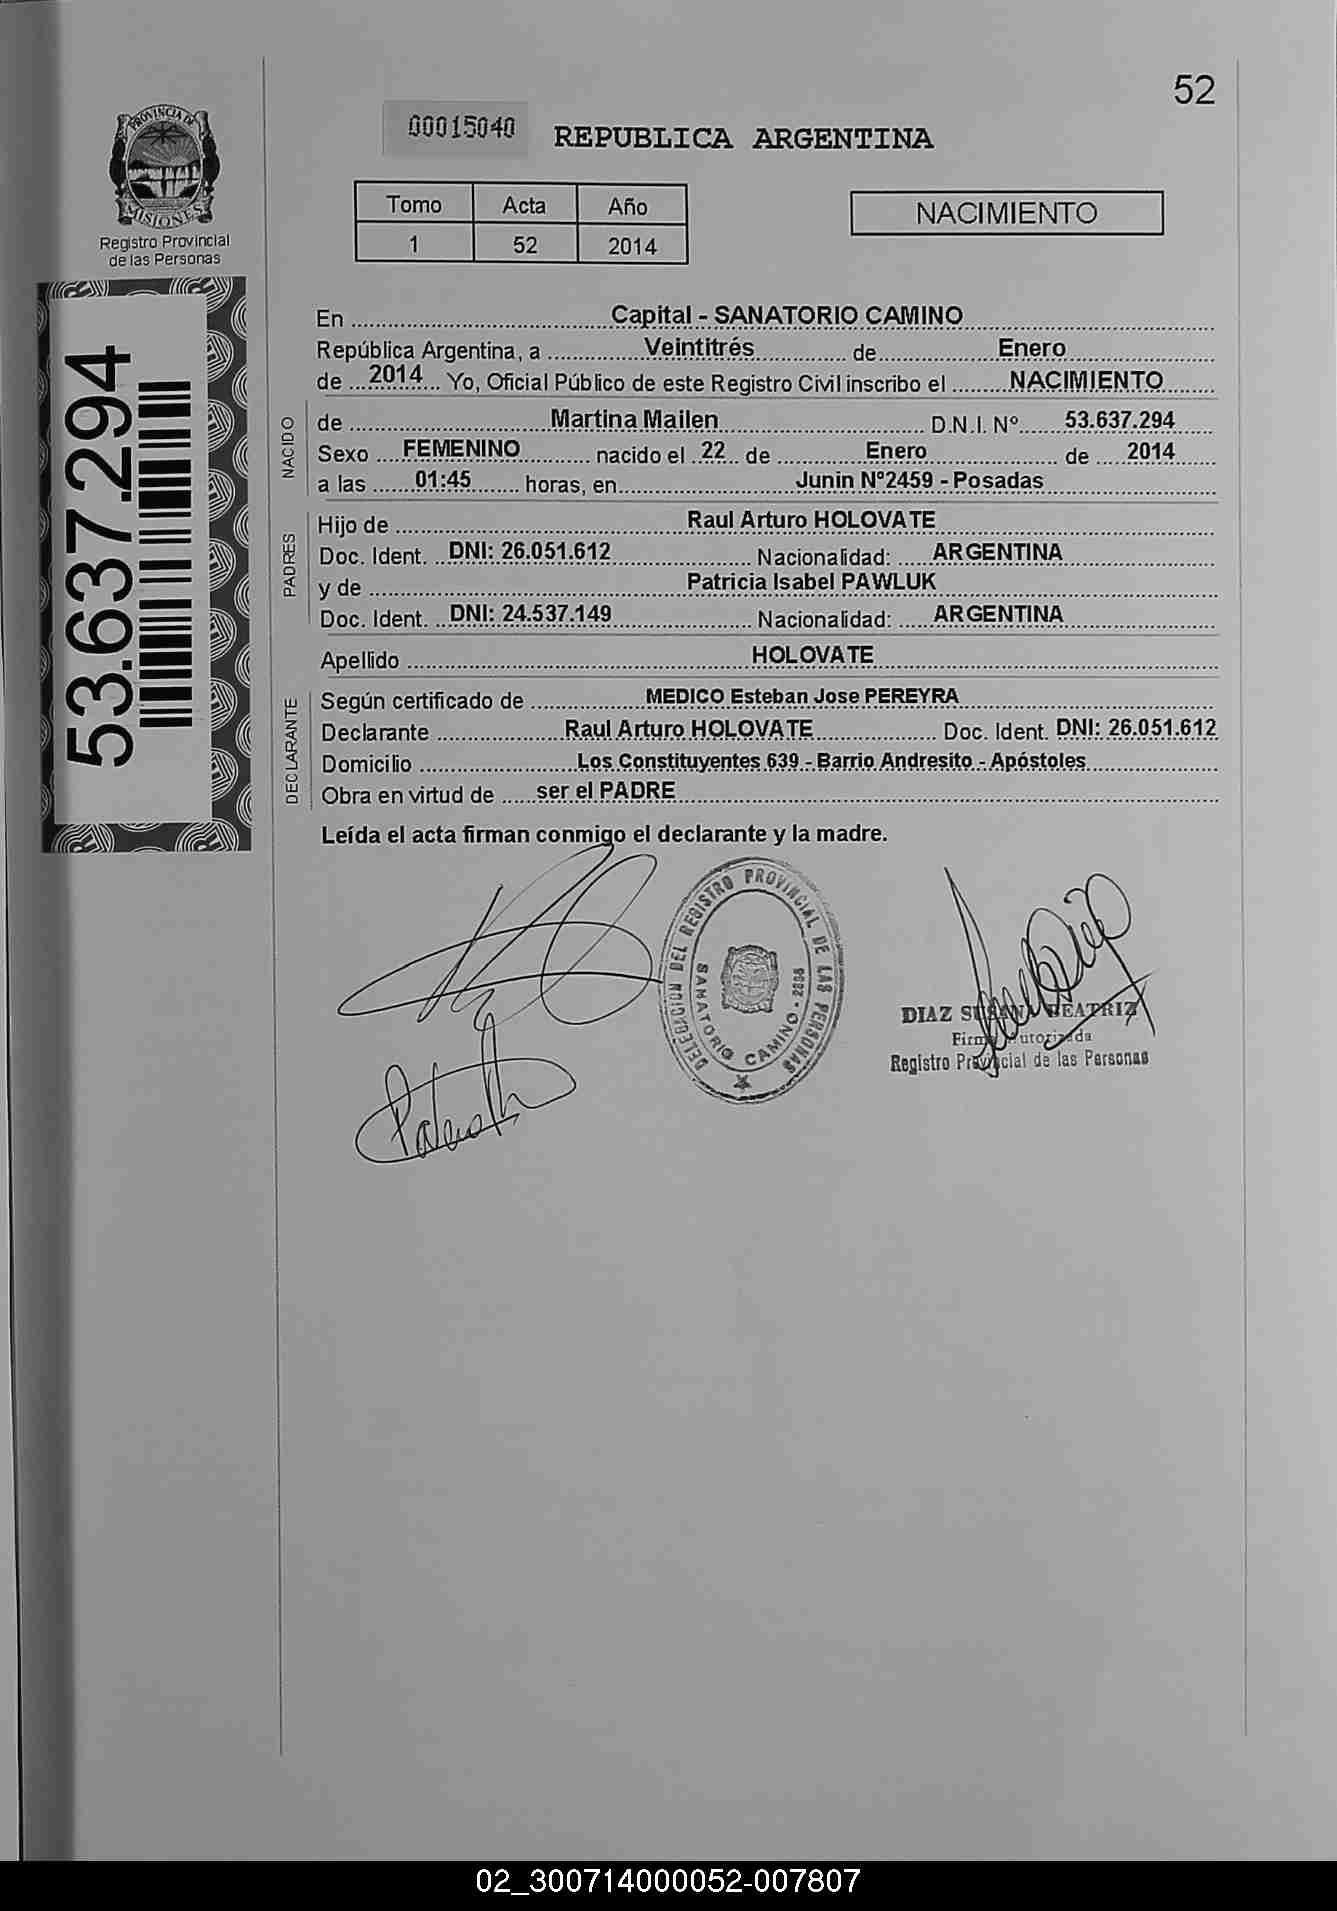 52
PROVINCIA DE
MISIONES
Registro Provincial
de las Personas
00015040 REPUBLICA ARGENTINA
Tomo Acta Año
1 52 2014
NACIMIENTO
53.637.294
En Capital - SANATORIO CAMINO
República Argentina, a Veintitrés de Enero
de 2014 Yo, Oficial Público de este Registro Civil inscribo el NACIMIENTO
NACIDO
de Martina Mailen D.N.I. Nº 53.637.294
Sexo FEMENINO nacido el 22 de Enero de 2014
a las 01:45 horas, en Junin Nº2459 - Posadas
PADRES
Hijo de Raul Arturo HOLOVATE
Doc. Ident. DNI: 26.051.612 Nacionalidad: ARGENTINA
y de Patricia Isabel PAWLUK
Doc. Ident. DNI: 24.537.149 Nacionalidad: ARGENTINA
Apellido HOLOVATE
DECLARANTE
Según certificado de MEDICO Esteban Jose PEREYRA
Declarante Raul Arturo HOLOVATE Doc. Ident. DNI: 26.051.612
Domicilio Los Constituyentes 639 - Barrio Andresito - Apóstoles
Obra en virtud de ser el PADRE
Leída el acta firman conmigo el declarante y la madre.
DELEGACION DEL REGISTRO PROVINCIAL DE LAS PERSONAS
SANATORIO CAMINO
DIAZ SUSANA BEATRIZ
Firma Autorizada
Registro Provincial de las Personas
02_300714000052-007807